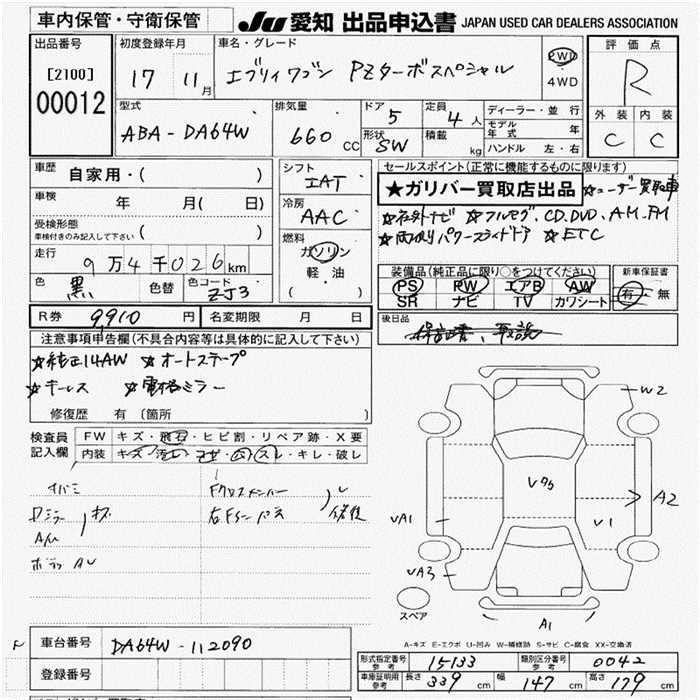 車内保管・守衛保管
JU 愛知 出品申込書 JAPAN USED CAR DEALERS ASSOCIATION
出品番号
[2100]
00012
初度登録年月
17 11月
車名・グレード
エブリィワゴン PZターボスペシャル
2WD
4WD
評価点
R
外装 内装
C C
型式
ABA-DA64W
排気量
660 CC
ドア 5
形状 SW
定員 4人
積載 kg
ディーラー・並行
モデル年式 年
ハンドル 左・右
車歴
自家用・( )
車検 年 月( 日)
受検形態
車検付きのみ記入して下さい ( )
走行
9万4千026km
色 黒 色替 色コード ZJ3
シフト
IAT
冷房
AAC
燃料
ガソリン
軽油
( )
セールスポイント(正常に機能するものに限ります)
★ガリバー買取店出品 ☆ユーザー買取車
☆社外ナビ ☆フルセグ、CD、DVD、AM、FM
☆両側パワースライドドア ☆ETC
装備品(純正品に限り○をつけてください)
PS PW エアB AW
SR ナビ TV カワシート
新車保証書
有・無
R券 9910円 名変期限 月 日
後日品
保証書、取説
注意事項申告欄(不具合内容等は具体的に記入して下さい)
☆純正14AW ☆オートステップ
☆キーレス ☆電格ミラー
修復歴 有 〔箇所 〕
検査員記入欄
FW キズ・飛石・ヒビ割・リペア跡・X要
内装 キズ・汚れ・コゲ・穴・スレ・キレ・破レ
Dミラー キズ
A/W
Fクロスメンバー
修復
W2
A2
V1
VA1
VA3
A1
スペア
A-キズ E-エクボ U-凹み W-補修跡 S-サビ C-腐食 XX-交換済
車台番号 DA64W-112090
登録番号
形式指定番号 参考 15133 類別区分番号 参考 0042
車庫証明用 参考 長さ 339cm 幅 147cm 高さ 179cm